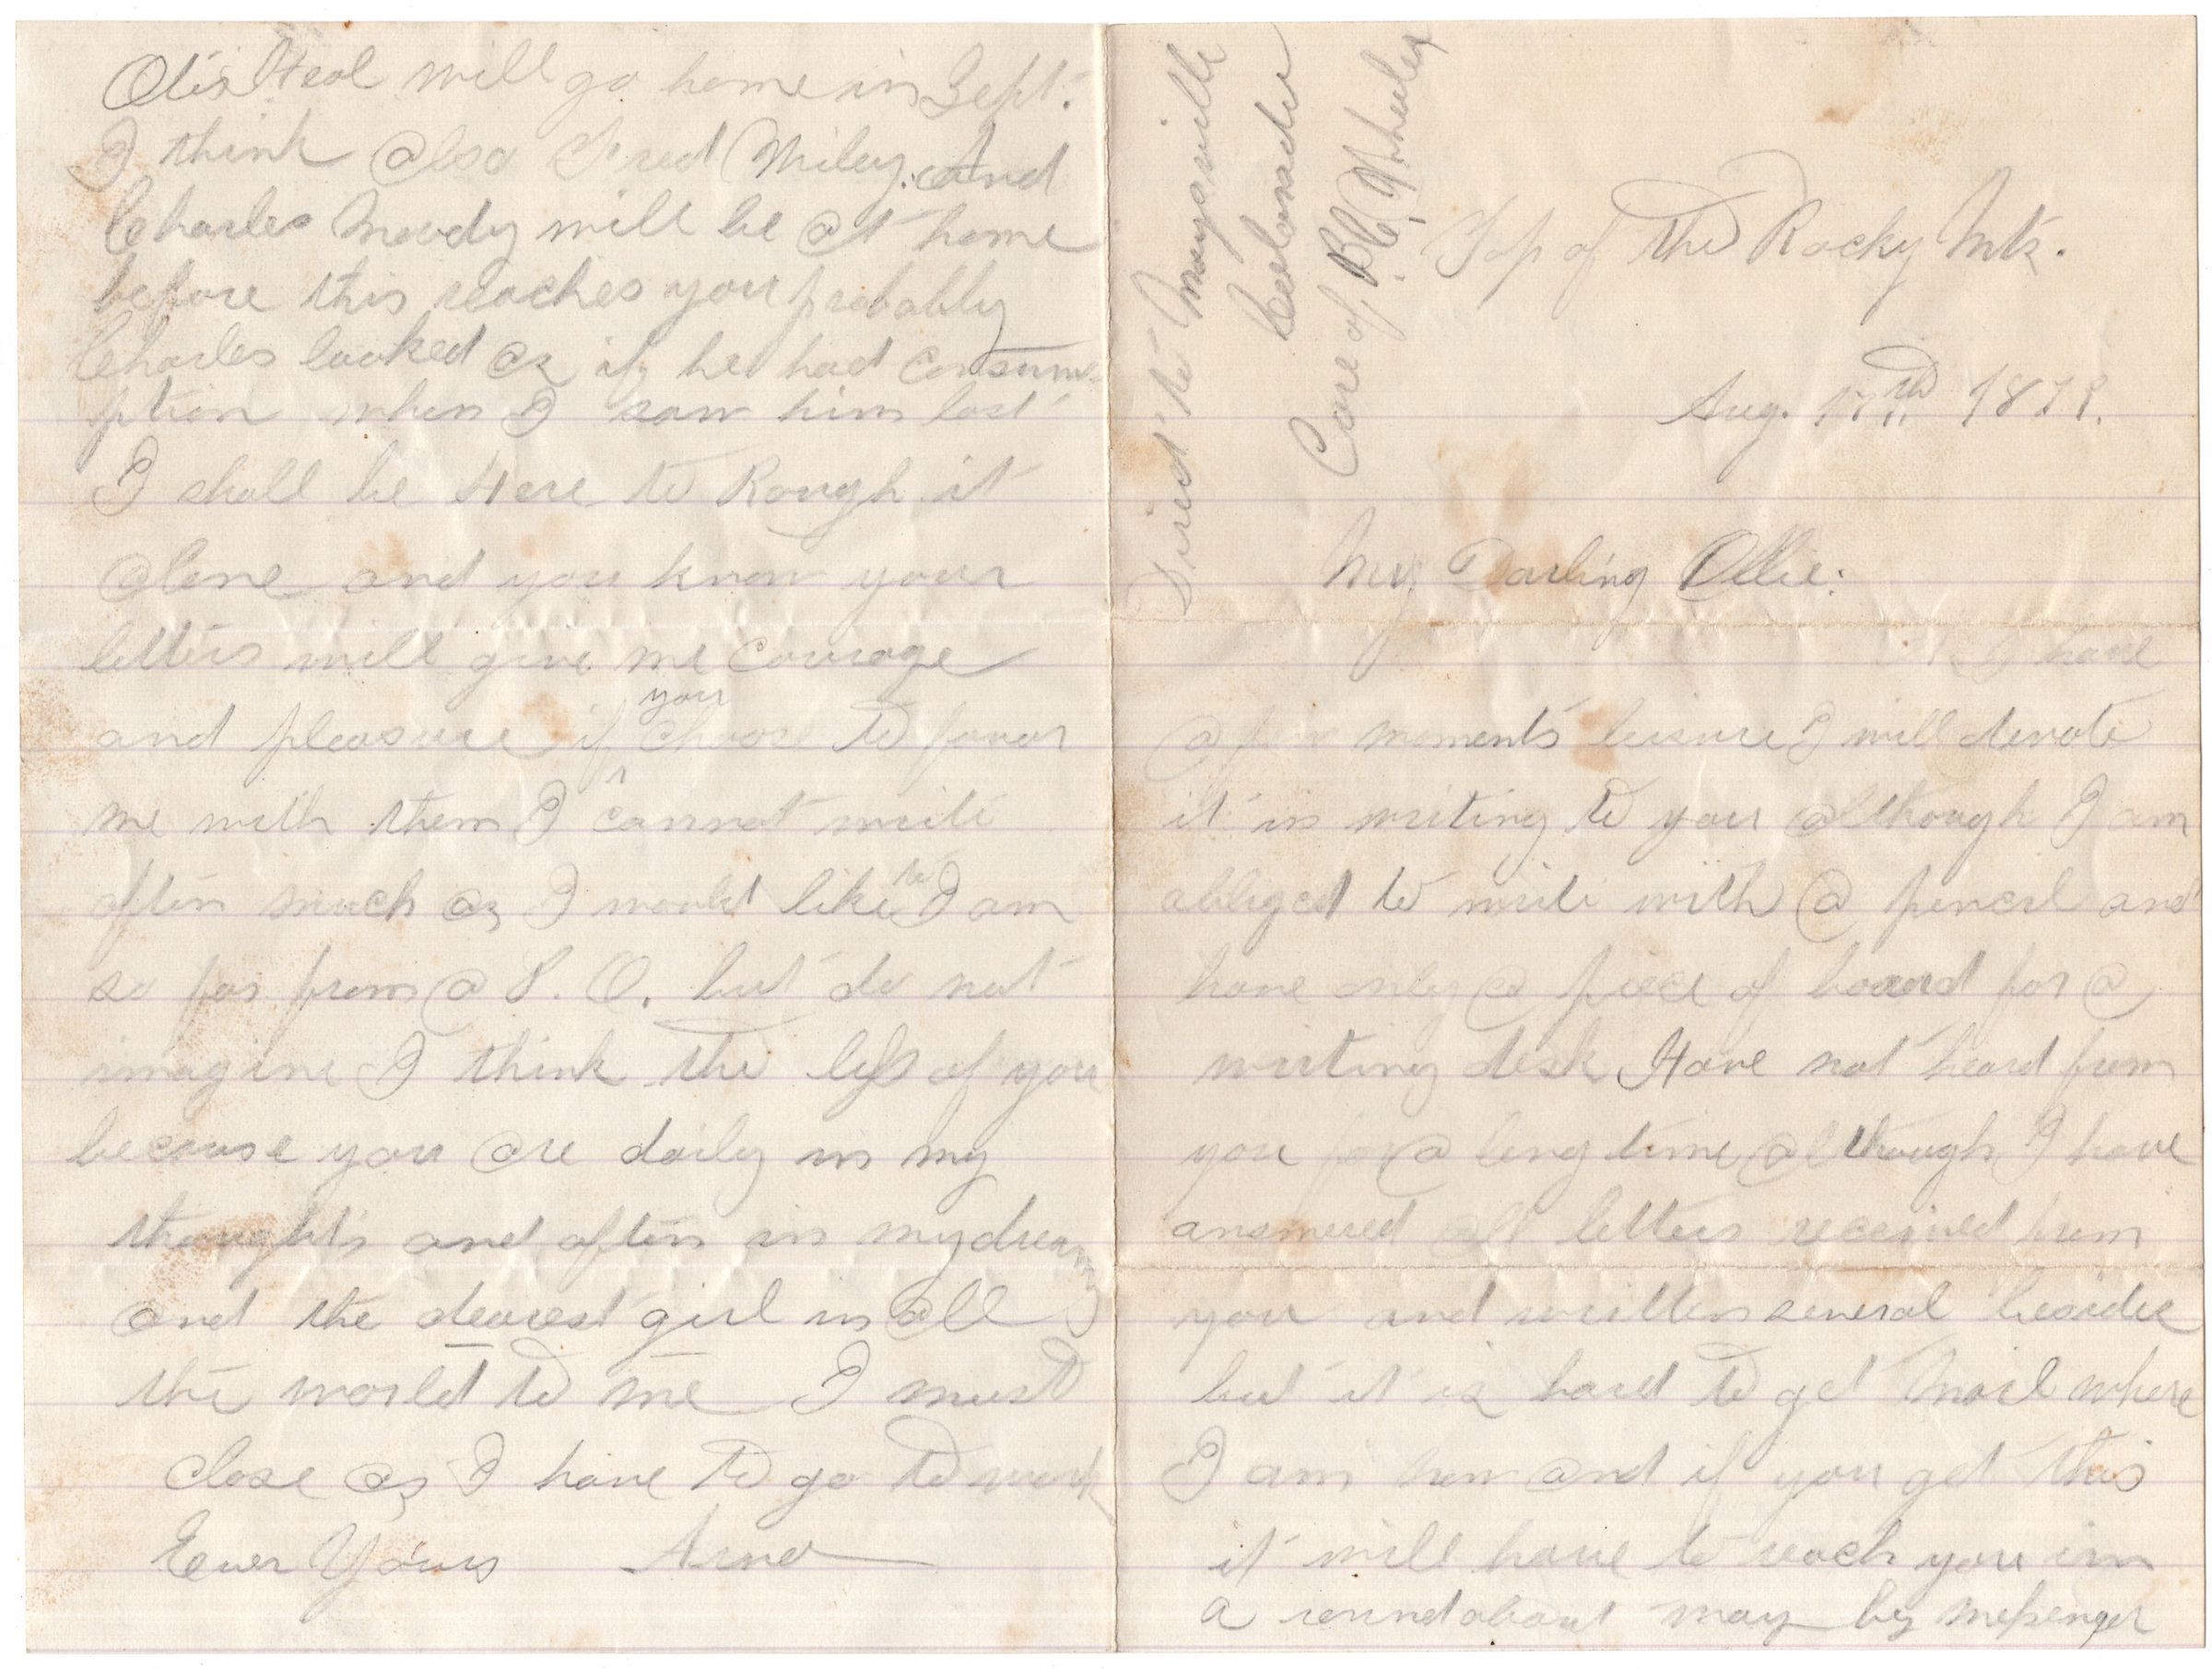 Direct to Maysville
Colorado
Care of B.C. Wheeler
Top of the Rocky Mts.
Aug. 17th 1879.
My Darling Ollie:
I have
a few moments leisure I will devote
it in writing to you although I am
obliged to write with a pencil and
have only a piece of board for a
writing desk Have not heard from
you for a long time although I have
answered all letters received from
you and written several beside
but it is hard to get Mail where
I am now and if you get this
it will have to reach you in
a roundabout way by messenger
Otis will go home in Sept.
I think also Fred Wiley. And
Charles Moody will be at home
before this reaches you probably
Charles looked as if he had consum-
ption when I saw him last
I shall be Here to Rough it
alone and you know your
letters will give me courage
and pleasure if you choose to favor
me with them I cannot write
often much as I would like to I am
so far from a P.O. but do not
imagine I think the less of you
because you are daily in my
thoughts and often in my dreams
and the dearest girl in all
the world to me I must
close as I have to go to work
Ever Yours Arno